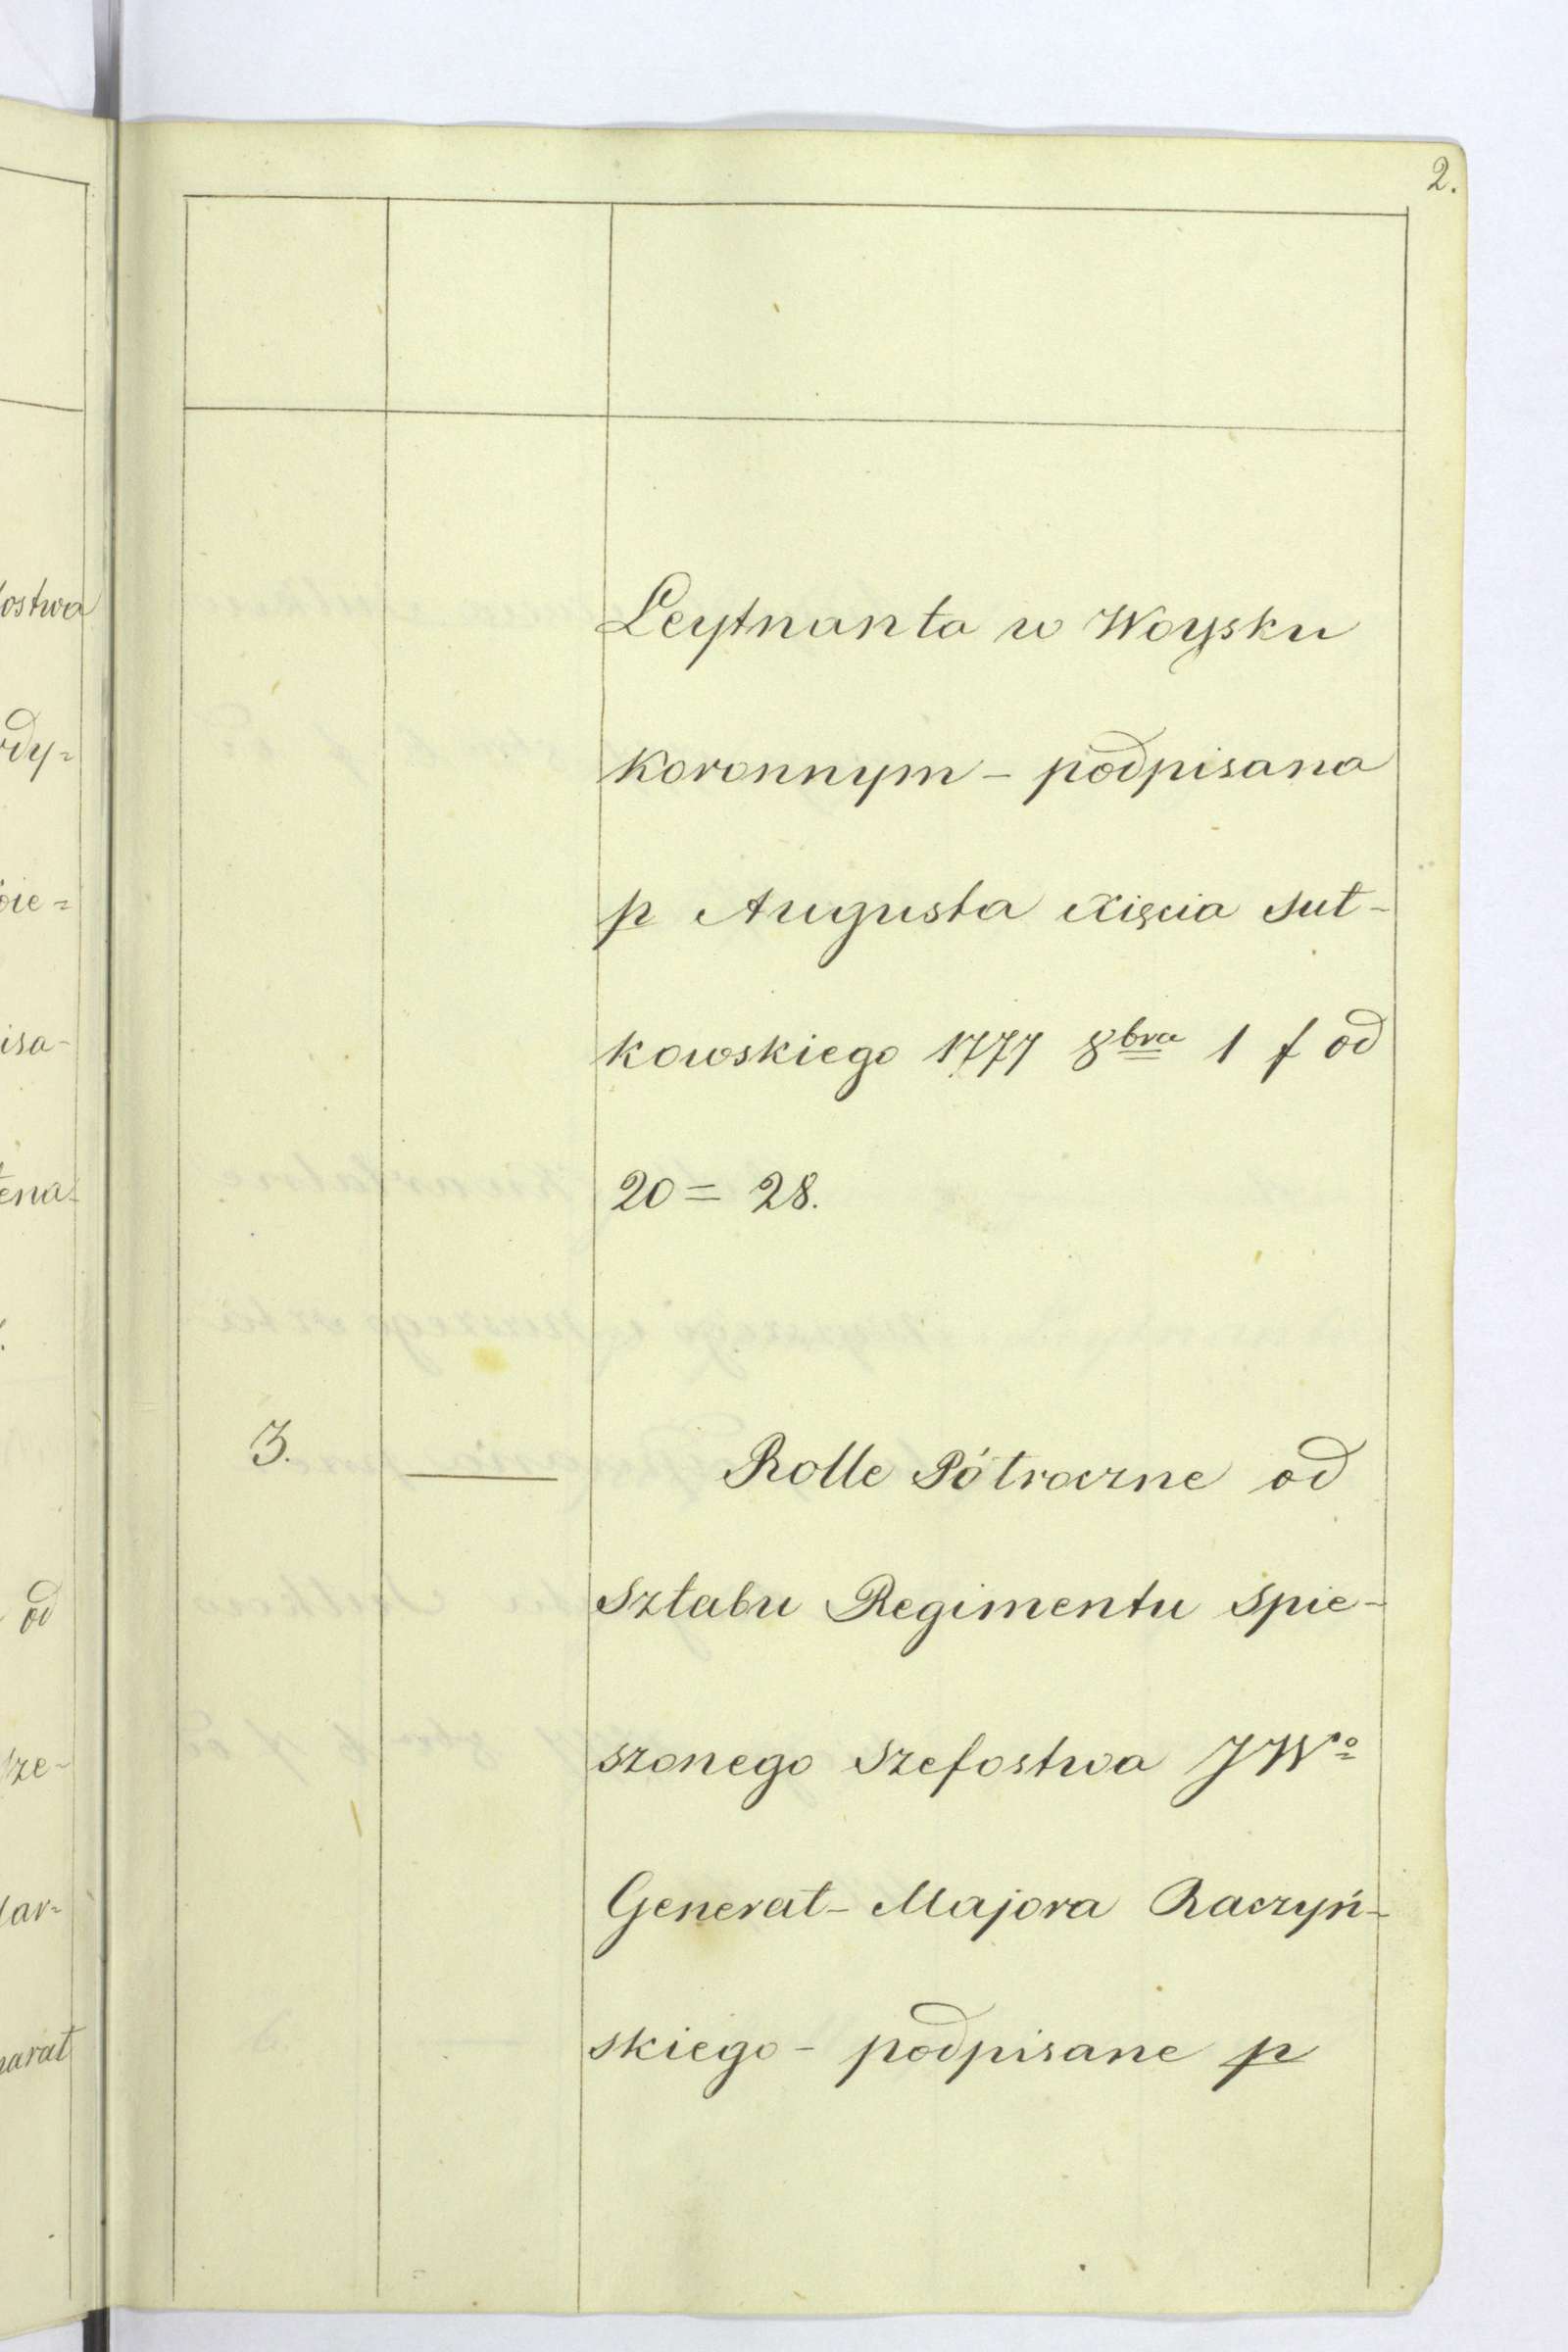 2.
ostwa
rdy=
oie=
isa-
tena-
od
sze-
ar=
arał
Leytnanta w Woysku
Koronnym – podpisana
p Augusta Xięcia Suł-
kowskiego 1777 8bra 1 f od
20 = 28.
3. — Rolle Półroczne od
Sztabu Regimentu spie-
szonego Szefostwa JWo
Generał-Majora Raczyń-
skiego – podpisane p